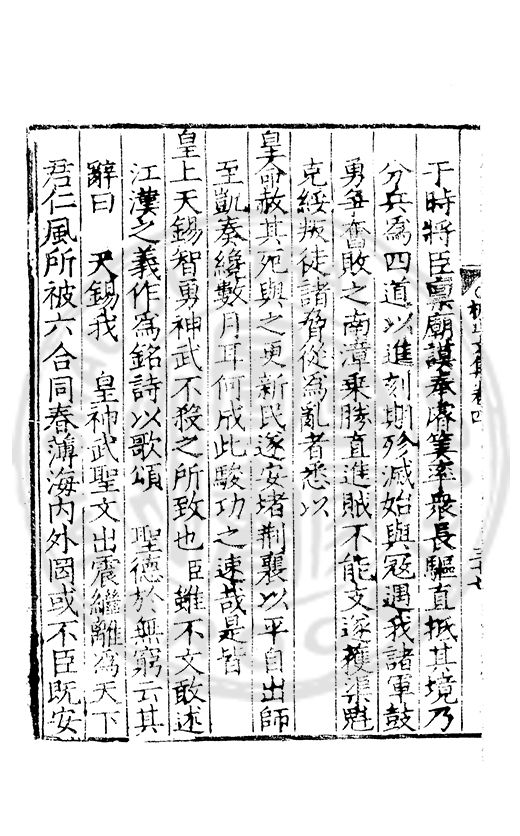 于時將臣稟廟謨奉睿筭率衆長驅直抵其境乃
分兵爲四道以進刻期殄滅始與冦遇我諸軍鼓
勇爭奮敗之南漳乗勝直進賊不能支遂擒渠魁
克綏叛徒諸脅從爲亂者悉以
皇命赦其死與之更新民遂安堵荆襄以平自出師
至凱奏纔數月耳何成此駿功之速哉是皆
皇上天錫智勇神武不殺之所致也臣雖不文敢述
江漢之義作爲銘詩以歌頌 聖德於無窮云其
辭曰 天錫我 皇神武聖文出震繼離爲天下
君仁風所被六合同春薄海内外罔或不臣既安
文集卷四
三十七